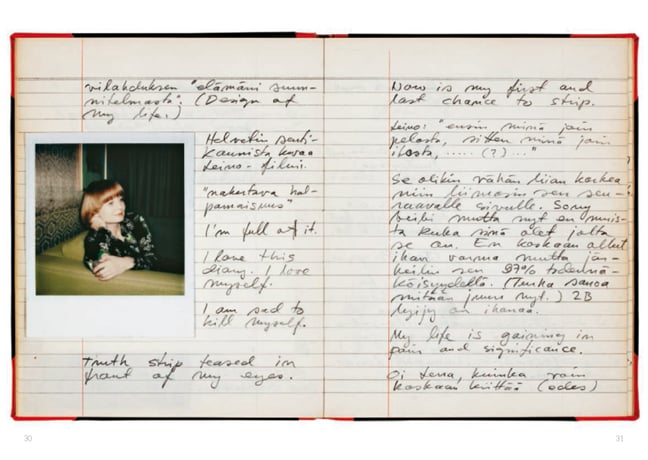 vilahduksen "elämäni suun-
nitelmasta". (Design of
my life.)
Helvetin
kaunista kuvaa
Leino-filmi.
"nakertava hal-
pamaisuus"
I'm full of it.
I love this
diary. I love
myself.
I am sad to
kill myself.
truth strip teased in
front of my eyes.
Now is my first and
last chance to strip.
Leino: "ensin minä join
pelosta, sitten minä join
ilosta, ..... (?) ..."
Se olikin vähän liian korkea
niin liimasin sen seu-
raavalle sivulle. Sorry
beibi mutta nyt en muis-
ta kuka sinä olet jotta
se on. En koskaan ollut
ihan varma mutta jän-
keilin sen 97% todennä-
köisyydellä. (Turha sanoa
mitään juuri nyt.) 2B
lyijy on ihanaa.
My life is gaining in
pain and significance.
Oi Lena, kuinka voin
koskaan kiittää (edes)
30
31